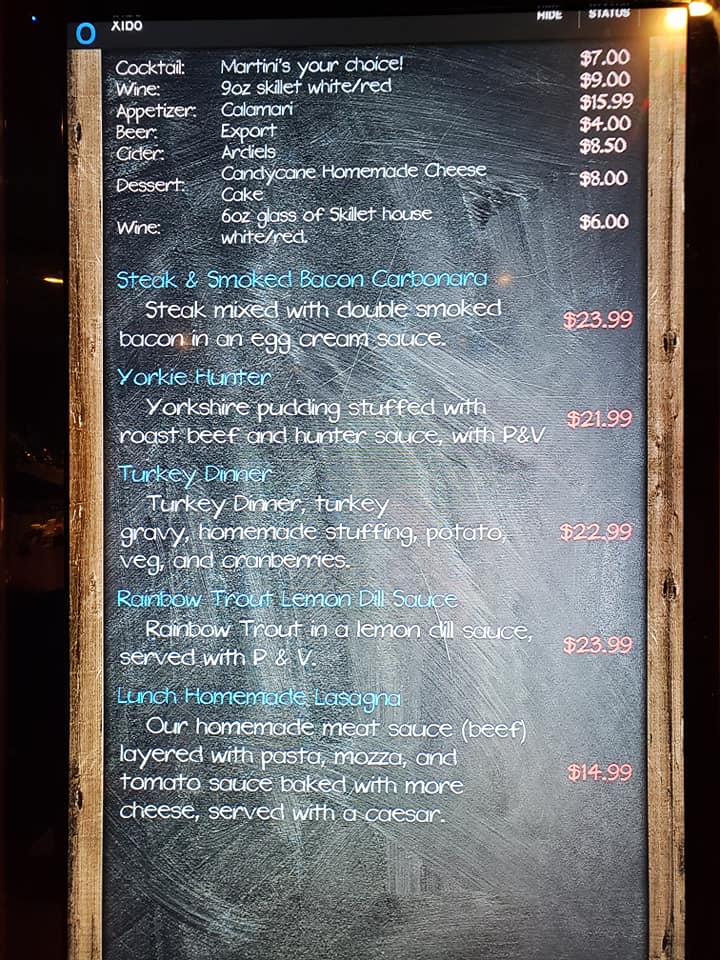 XIBO HIDE STATUS
Cocktail: Martini's your choice! $7.00
Wine: 9oz skillet white/red $9.00
Appetizer: Calamari $15.99
Beer: Export $4.00
Cider: Ardiels $8.50
Dessert: Candycane Homemade Cheese
Cake $8.00
Wine: 6oz glass of Skillet house
white/red. $6.00
Steak & Smoked Bacon Carbonara
Steak mixed with double smoked
bacon in an egg cream sauce. $23.99
Yorkie Hunter
Yorkshire pudding stuffed with
roast beef and hunter sauce, with P&V $21.99
Turkey Dinner
Turkey Dinner, turkey
gravy, homemade stuffing, potato, $22.99
veg, and cranberries.
Rainbow Trout Lemon Dill Sauce
Rainbow Trout in a lemon dill sauce,
served with P & V. $23.99
Lunch Homemade Lasagna
Our homemade meat sauce (beef)
layered with pasta, mozza, and
tomato sauce baked with more $14.99
cheese, served with a caesar.